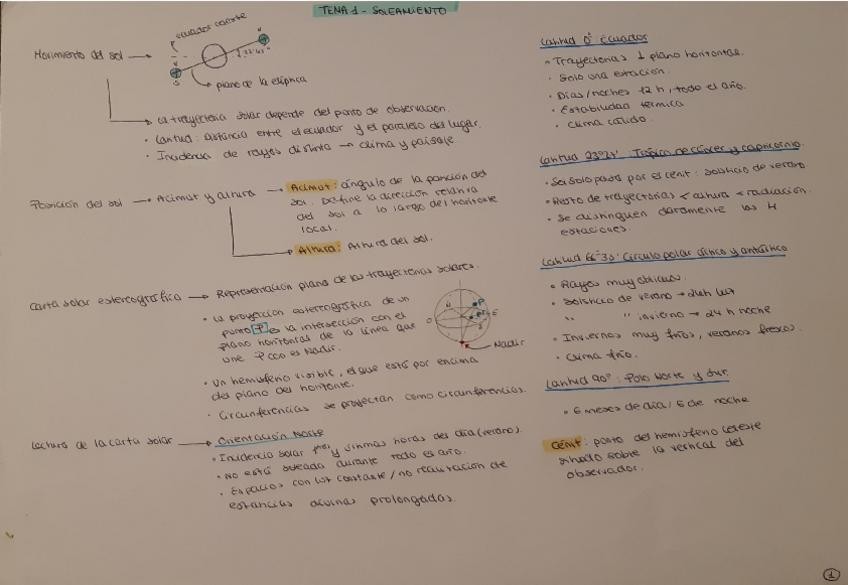 TEMA 1 - SOLEAMIENTO
Movimiento del sol
ecuador celeste
plano de la elíptica
La trayectoria solar depende del punto de observación.
Latitud: distancia entre el ecuador y el paralelo del lugar.
Incidencia de rayos distinta → clima y paisaje.
Posición del sol → Acimut y altura → Acimut: ángulo de la posición del
sol. Define la dirección relativa
del sol a lo largo del horizonte
local.
Altura: Altura del sol.
Carta solar estereográfica → Representación plana de las trayectorias solares.
• La proyección estereográfica de un
punto P es la intersección con el
plano horizontal de la línea que
une P con el Nadir.
Nadir
• Un hemisferio visible, el que está por encima
del plano del horizonte.
• Circunferencias se proyectan como circunferencias.
Lectura de la carta solar → Orientación Norte
• Incidencia solar 1ras y últimas horas del día (verano).
• No está soleada durante todo el año.
• Espacios con luz constante / no realización de
estancias diurnas prolongadas.
Latitud 0° Ecuador
• Trayectorias ⊥ plano horizontal.
• Solo una estación.
• Días/noches 12 h, todo el año.
• Estabilidad térmica
• Clima cálido.
Latitud 23°27': Trópico de cáncer y capricornio
• Sol solo pasa por el cenit: solsticio de verano
• Resto de trayectorias < altura < radiación.
• Se distinguen claramente las 4
estaciones.
Latitud 66°33': Círculo polar ártico y antártico
• Rayos muy oblicuos.
• Solsticio de verano → 24h luz
" " invierno → 24 h noche
• Inviernos muy fríos, veranos frescos.
• Clima frío.
Latitud 90°: Polo Norte y Sur.
• 6 meses de día / 6 de noche
Cénit: punto del hemisferio celeste
situado sobre la vertical del
observador.
1